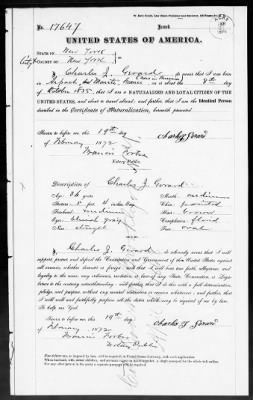 No. 17647 Issued
UNITED STATES OF AMERICA.
STATE OF New York
COUNTY OF New York
I, Charles J. Girard do swear that I was born
in France on or about the 9th day
of October 1835, that I am a NATURALIZED AND LOYAL CITIZEN OF THE
UNITED STATES, and about to travel abroad; and further, that I am the Identical Person
described in the Certificate of Naturalization, herewith presented.
Sworn to before me, this 19th day
of February 1872
Francis Forbes
Notary Public
Charles J Girard
Description of Charles J. Girard
Age: 36 years
Stature: 5 feet
Forehead: medium
Eyes: bluish gray
Nose: straight
Mouth: medium
Chin: pointed
Hair: brown
Complexion: florid
Face: oval
I, Charles J. Girard do solemnly swear that I will
support, protect and defend the Constitution and Government of the United States against
all enemies, whether domestic or foreign; and that I will bear true faith, allegiance, and
loyalty to the same, any ordinance, resolution or law of any State Convention or Legisla-
ture to the contrary notwithstanding; and further, that I do this with a full determination,
pledge, and purpose, without any mental reservation or evasion whatsoever; and further, that
I will well and faithfully perform all the duties which may be required of me by law.
So help me God.
Sworn to before me, this 19th day
of February 1872
Francis Forbes
Notary Public
Charles J Girard